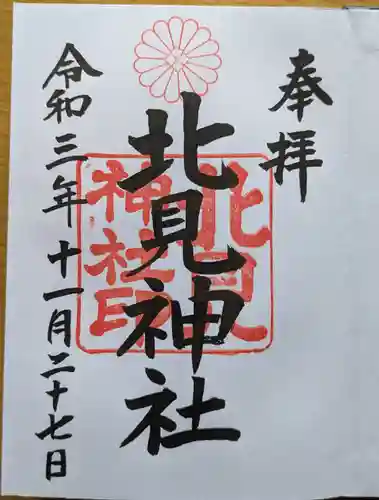 奉拝
北見神社
北見
神社印
令和三年十一月二十七日